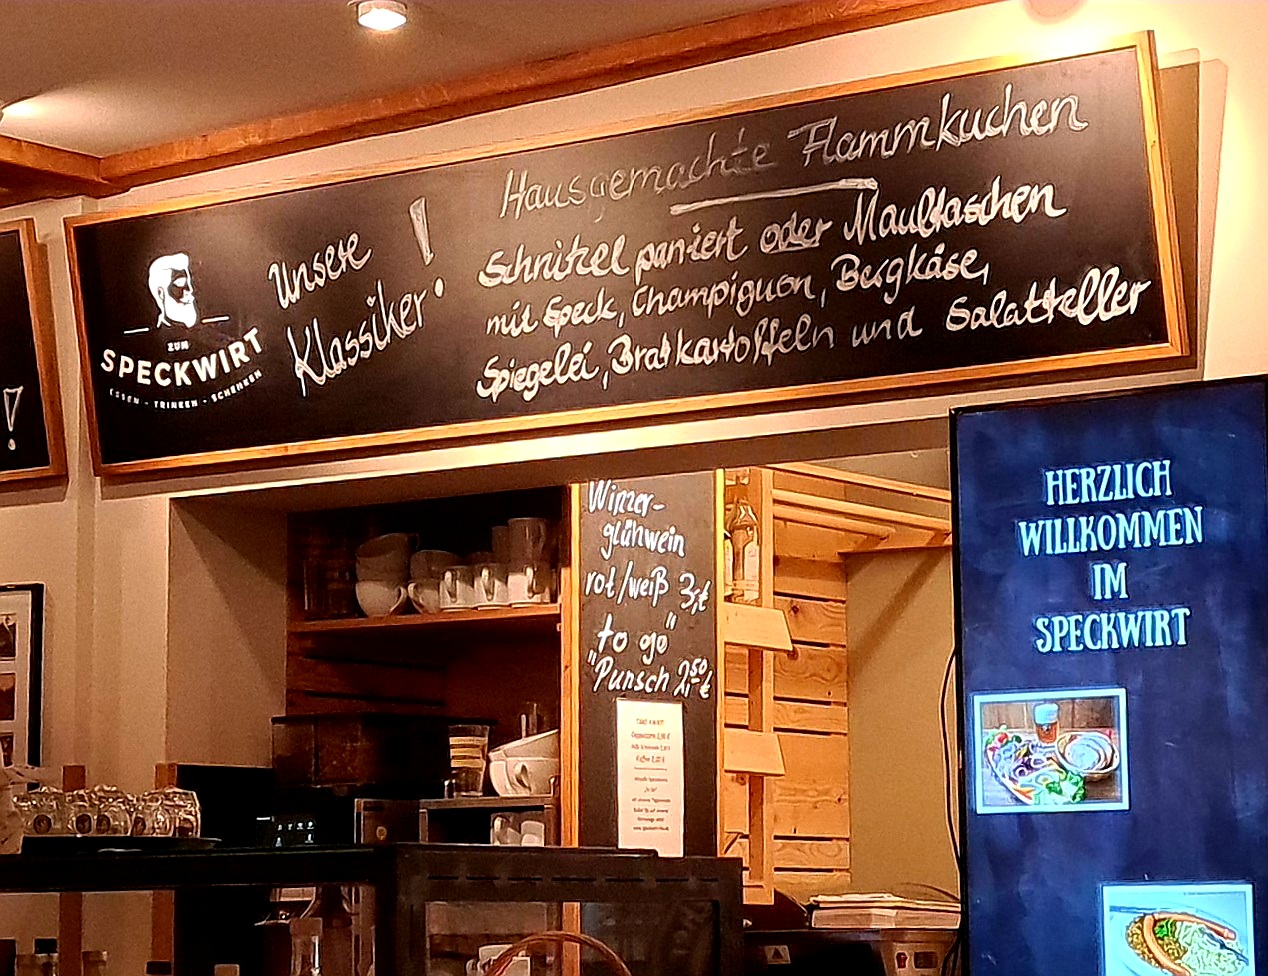 ZUM
SPECKWIRT
ESSEN - TRINKEN - SCHENKEN
Unsere
Klassiker!
Hausgemachte Flammkuchen
Schnitzel paniert oder Maultaschen
mit Speck, Champignon, Bergkäse,
Spiegelei, Bratkartoffeln und Salatteller
!
Winzer-
glühwein
rot/weiß 3,-€
"to go"
"Punsch 2,50 €
HERZLICH
WILLKOMMEN
IM
SPECKWIRT